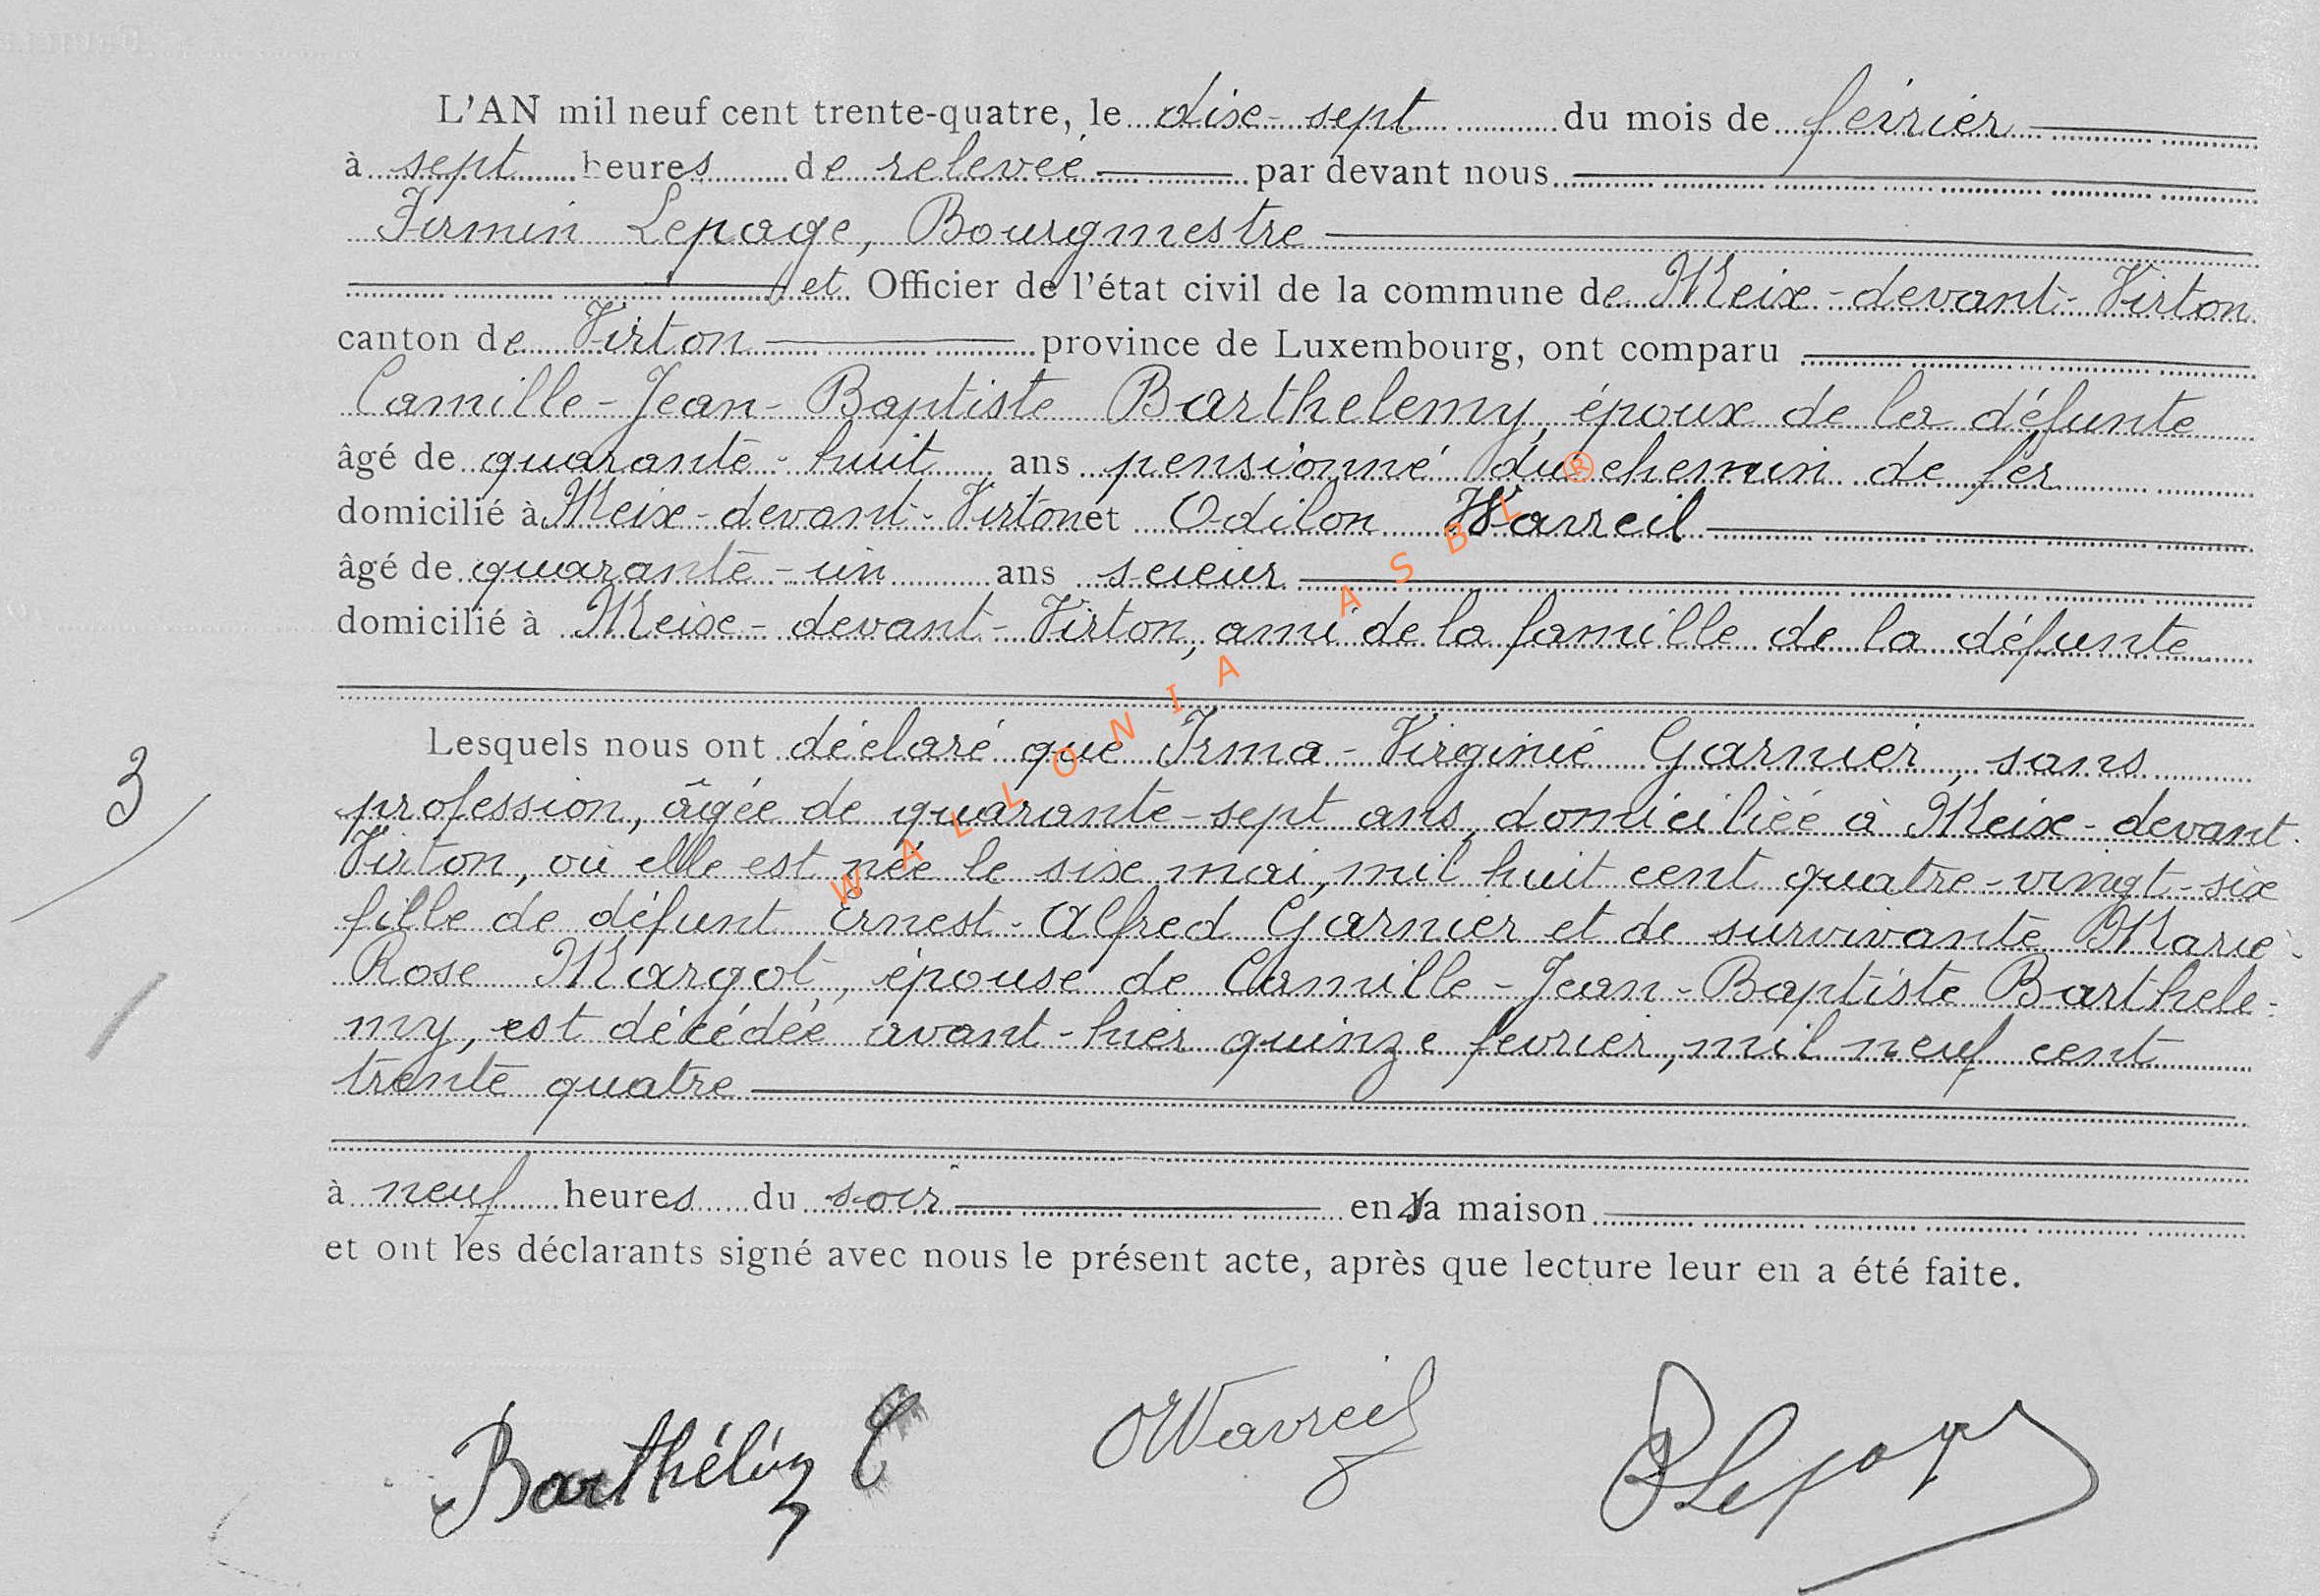 L'AN mil neuf cent trente-quatre, le dix-sept du mois de février
à sept heures de relevée par devant nous
Firmin Lepage, Bourgmestre
et Officier de l'état civil de la commune de Meix-devant-Virton
canton de Virton province de Luxembourg, ont comparu
Camille-Jean-Baptiste Barthelemy, époux de la défunte
âgé de quarante-huit ans pensionné du chemin de fer
domicilié à Meix-devant-Virton et Odilon Wavreil
âgé de quarante-un ans scieur
domicilié à Meix-devant-Virton, ami de la famille de la défunte
Lesquels nous ont déclaré que Irma-Virginie Garnier, sans
profession, âgée de quarante-sept ans, domiciliée à Meix-devant-
Virton, où elle est née le six mai, mil huit cent quatre-vingt-six
fille de défunt Ernest-Alfred Garnier et de survivante Marie-
Rose Margot, épouse de Camille-Jean-Baptiste Barthele-
my, est décédée avant-hier quinze fevrier, mil neuf cent
trente quatre
3
à neuf heures du soir en sa maison
et ont les déclarants signé avec nous le présent acte, après que lecture leur en a été faite.
Barthélémy C
OWavreil
Lepage
WALLONIA ASBL ®